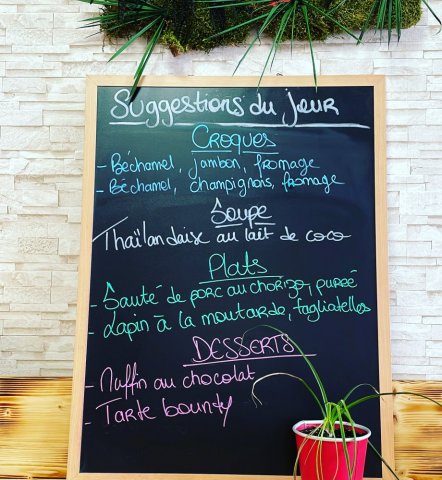 Suggestions du jour
Croques
- Béchamel, jambon, fromage
- Béchamel, champignons, fromage
Soupe
Thaïlandaise au lait de coco
Plats
- Sauté de porc au chorizo, purée
- Lapin à la moutarde, tagliatelles
DESSERTS
- Muffin au chocolat
- Tarte bounty